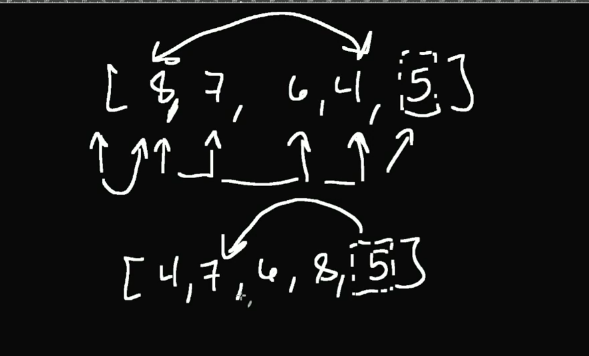 [ 8, 7, 6, 4, 5 ]
[ 4, 7, 6, 8, 5 ]